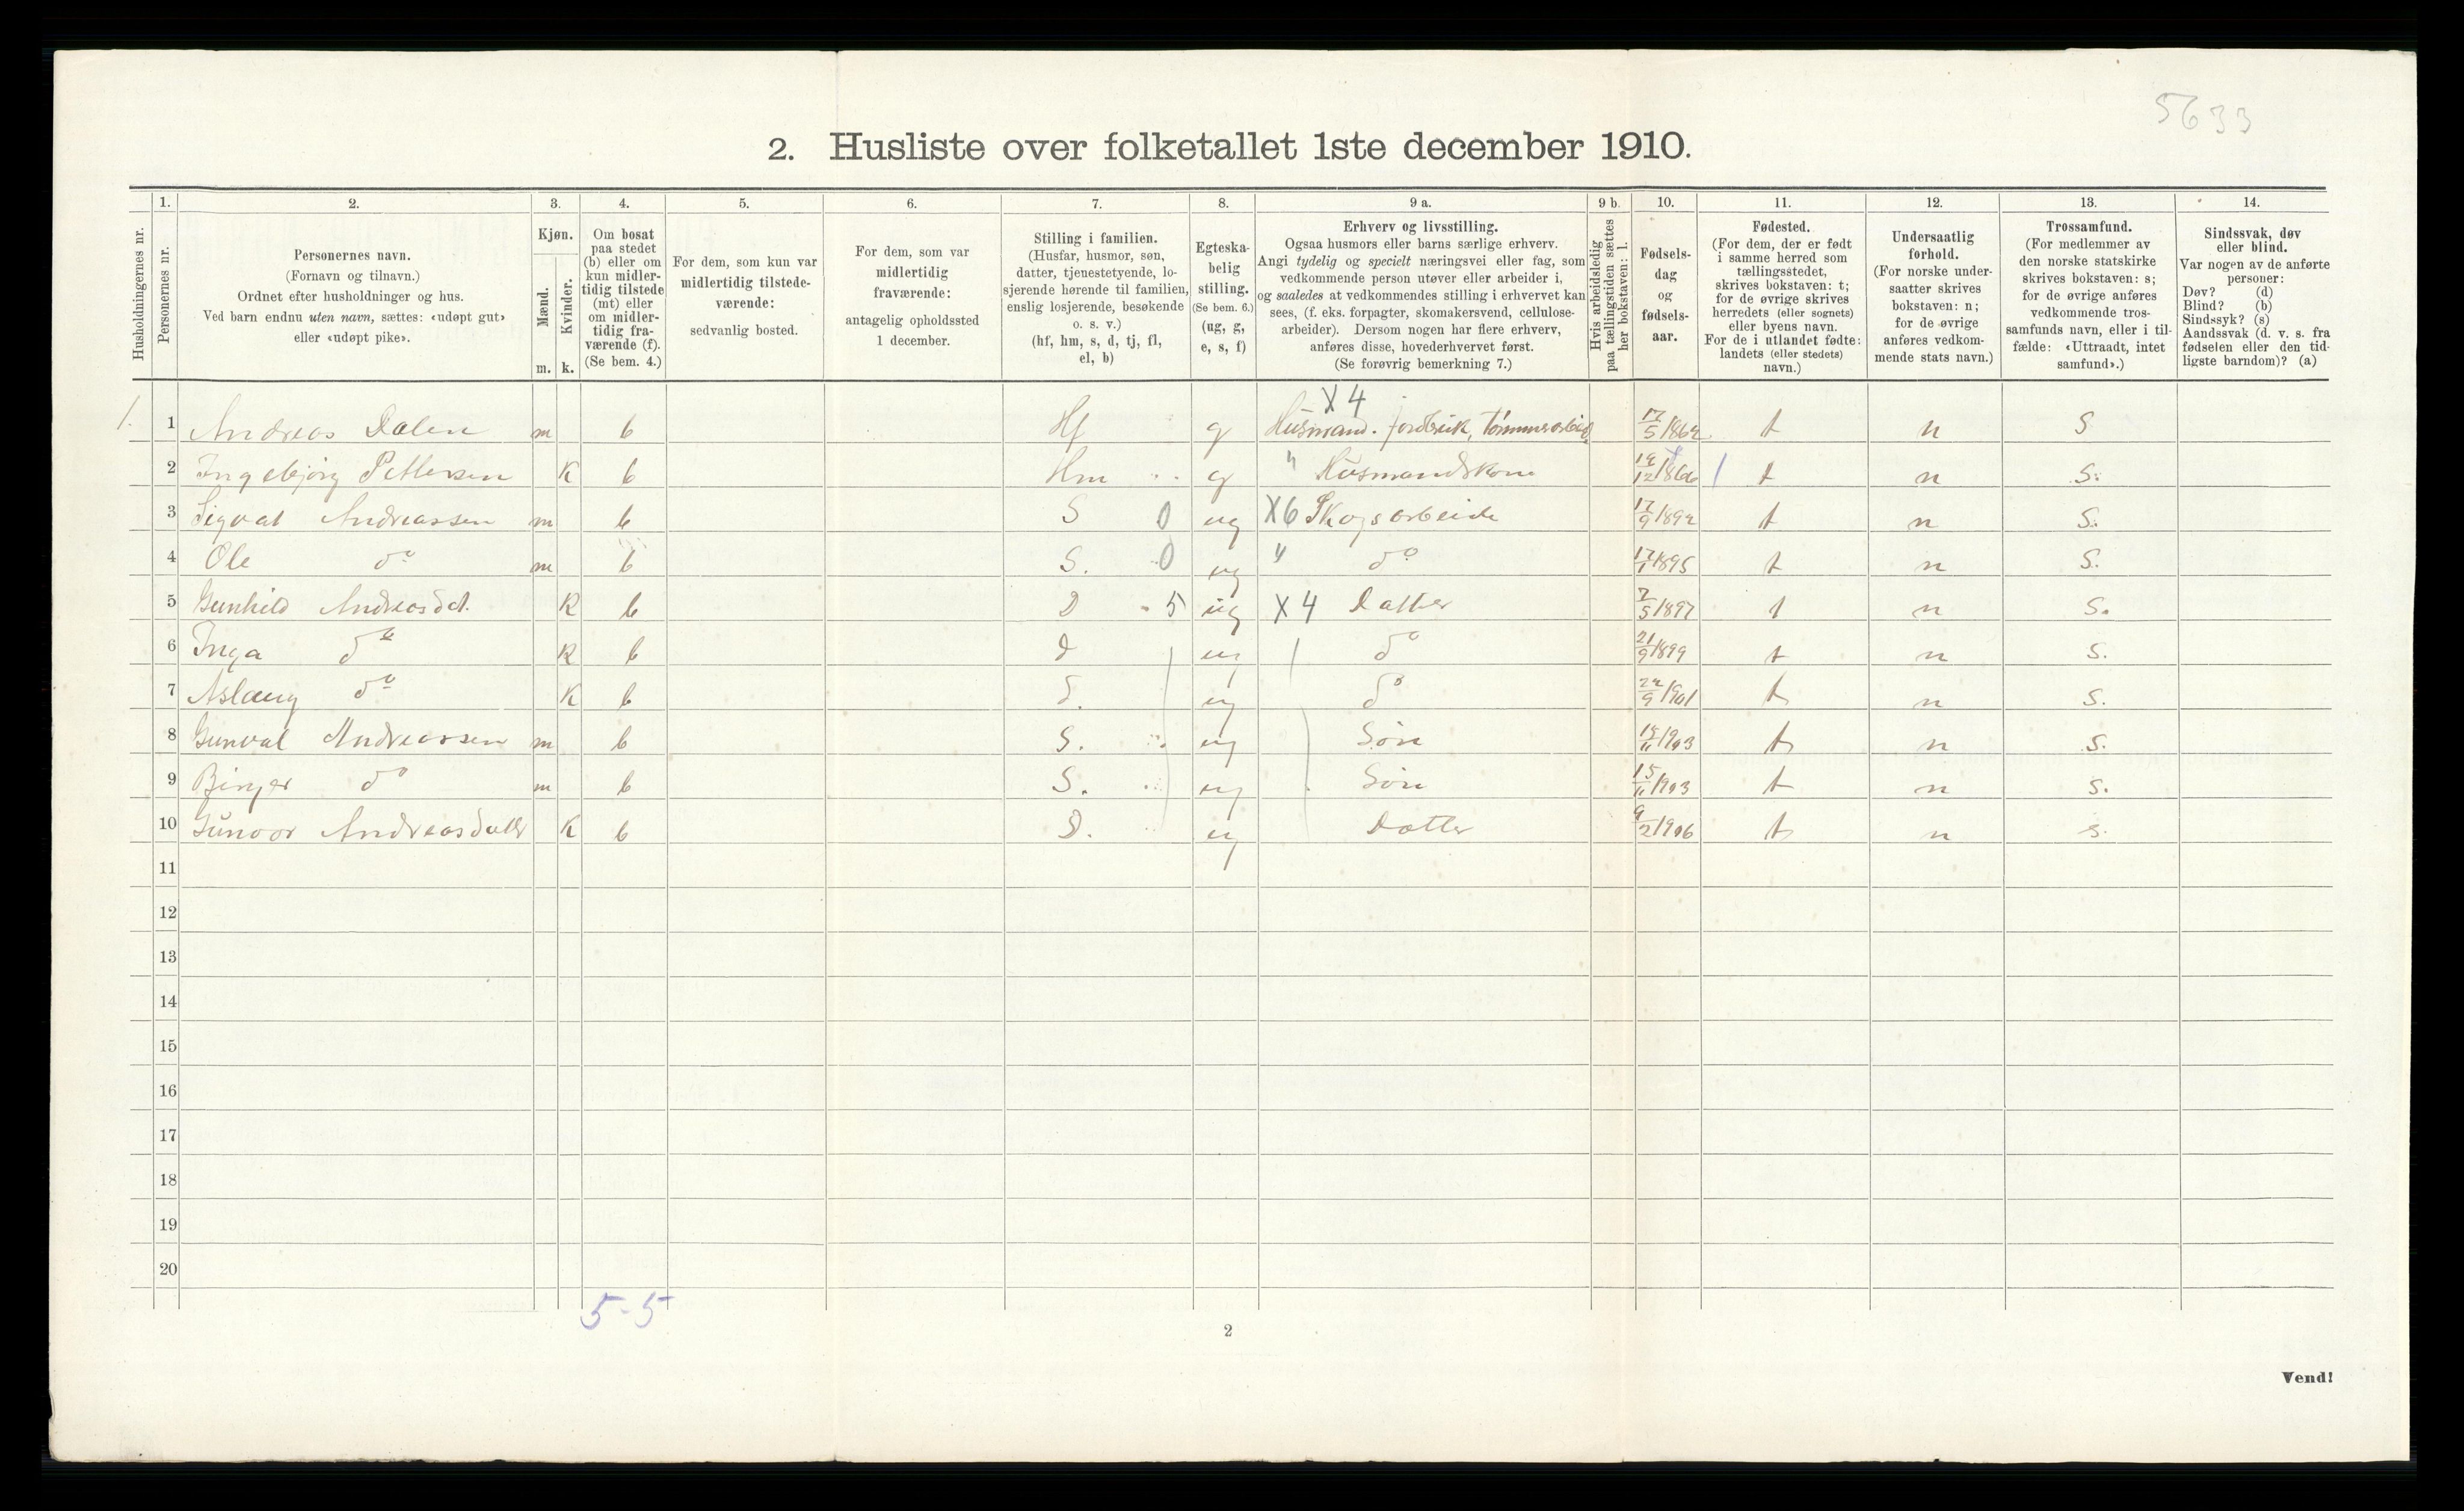 5633
2. Husliste over folketallet 1ste december 1910.
Husholdningernes nr.
1.
Personernes nr.
2.
Personernes navn.
(Fornavn og tilnavn.)
Ordnet efter husholdninger og hus.
Ved barn endnu uten navn, sættes: «udøpt gut»
eller «udøpt pike».
3.
Kjøn.
Mænd.
Kvinder.
m. k.
4.
Om bosat
paa stedet
(b) eller om
kun midler-
tidig tilstede
(mt) eller
om midler-
tidig fra-
værende (f).
(Se bem. 4.)
5.
For dem, som kun var
midlertidig tilstede-
værende:
sedvanlig bosted.
6.
For dem, som var
midlertidig
fraværende:
antagelig opholdssted
1 december.
7.
Stilling i familien.
(Husfar, husmor, søn,
datter, tjenestetyende, lo-
sjerende hørende til familien,
enslig losjerende, besøkende
o. s. v.)
(hf, hm, s, d, tj, fl,
el, b)
8.
Egteska-
belig
stilling.
(Se bem. 6.)
(ug, g,
e, s, f)
9 a.
Erhverv og livsstilling.
Ogsaa husmors eller barns særlige erhverv.
Angi tydelig og specielt næringsvei eller fag, som
vedkommende person utøver eller arbeider i,
og saaledes at vedkommendes stilling i erhvervet kan
sees, (f. eks. forpagter, skomakersvend, cellulose-
arbeider). Dersom nogen har flere erhverv,
anføres disse, hovederhvervet først.
(Se forøvrig bemerkning 7.)
9 b.
Hvis arbeidsledig
paa tællingstiden sættes
her bokstaven: l.
10.
Fødsels-
dag
og
fødsels-
aar.
11.
Fødested.
(For dem, der er født
i samme herred som
tællingsstedet,
skrives bokstaven: t;
for de øvrige skrives
herredets (eller sognets)
eller byens navn.
For de i utlandet fødte:
landets (eller stedets)
navn.)
12.
Undersaatlig
forhold.
(For norske under-
saatter skrives
bokstaven: n;
for de øvrige
anføres vedkom-
mende stats navn.)
13.
Trossamfund.
(For medlemmer av
den norske statskirke
skrives bokstaven: s;
for de øvrige anføres
vedkommende tros-
samfunds navn, eller i til-
fælde: «Uttraadt, intet
samfund».)
14.
Sindssvak, døv
eller blind.
Var nogen av de anførte
personer:
Døv? (d)
Blind? (b)
Sindssyk? (s)
Aandssvak (d. v. s. fra
fødselen eller den tid-
ligste barndom)? (a)
X 4
1. 1 Andreas Dalen m b Hf g Husmand. jordbruk, tømmerarbeid 17/5 1862 t n S
2 Ingebjörg Pettersen K b Hm g " Husmandskone 12/1866 t n S.
3 Sigval Andreassen m b S 0 ug X6 Skogsarbeide 17/9 1892 t n S.
4 Ole do m b S. 0 ug " do 17/1 1895 t n S.
5 Gunhild Andreasdt. K b D 5 ug X 4 Datter 7/5 1897 t n S.
6 Inga do K b d ug do 21/9 1899 t n S.
7 Aslaug do K b d. ug do 22/9 1901 t n S.
8 Gunval Andreassen m b S. ug Søn 15/11 1903 t n S.
9 Birger do m b S. ug Søn 15/11 1903 t n S.
10 Gunvor Andreasdatter K b D. ug Datter 9/2 1906 t n S.
11
12
13
14
15
16
17
18
19
20
5-5
2
Vend!